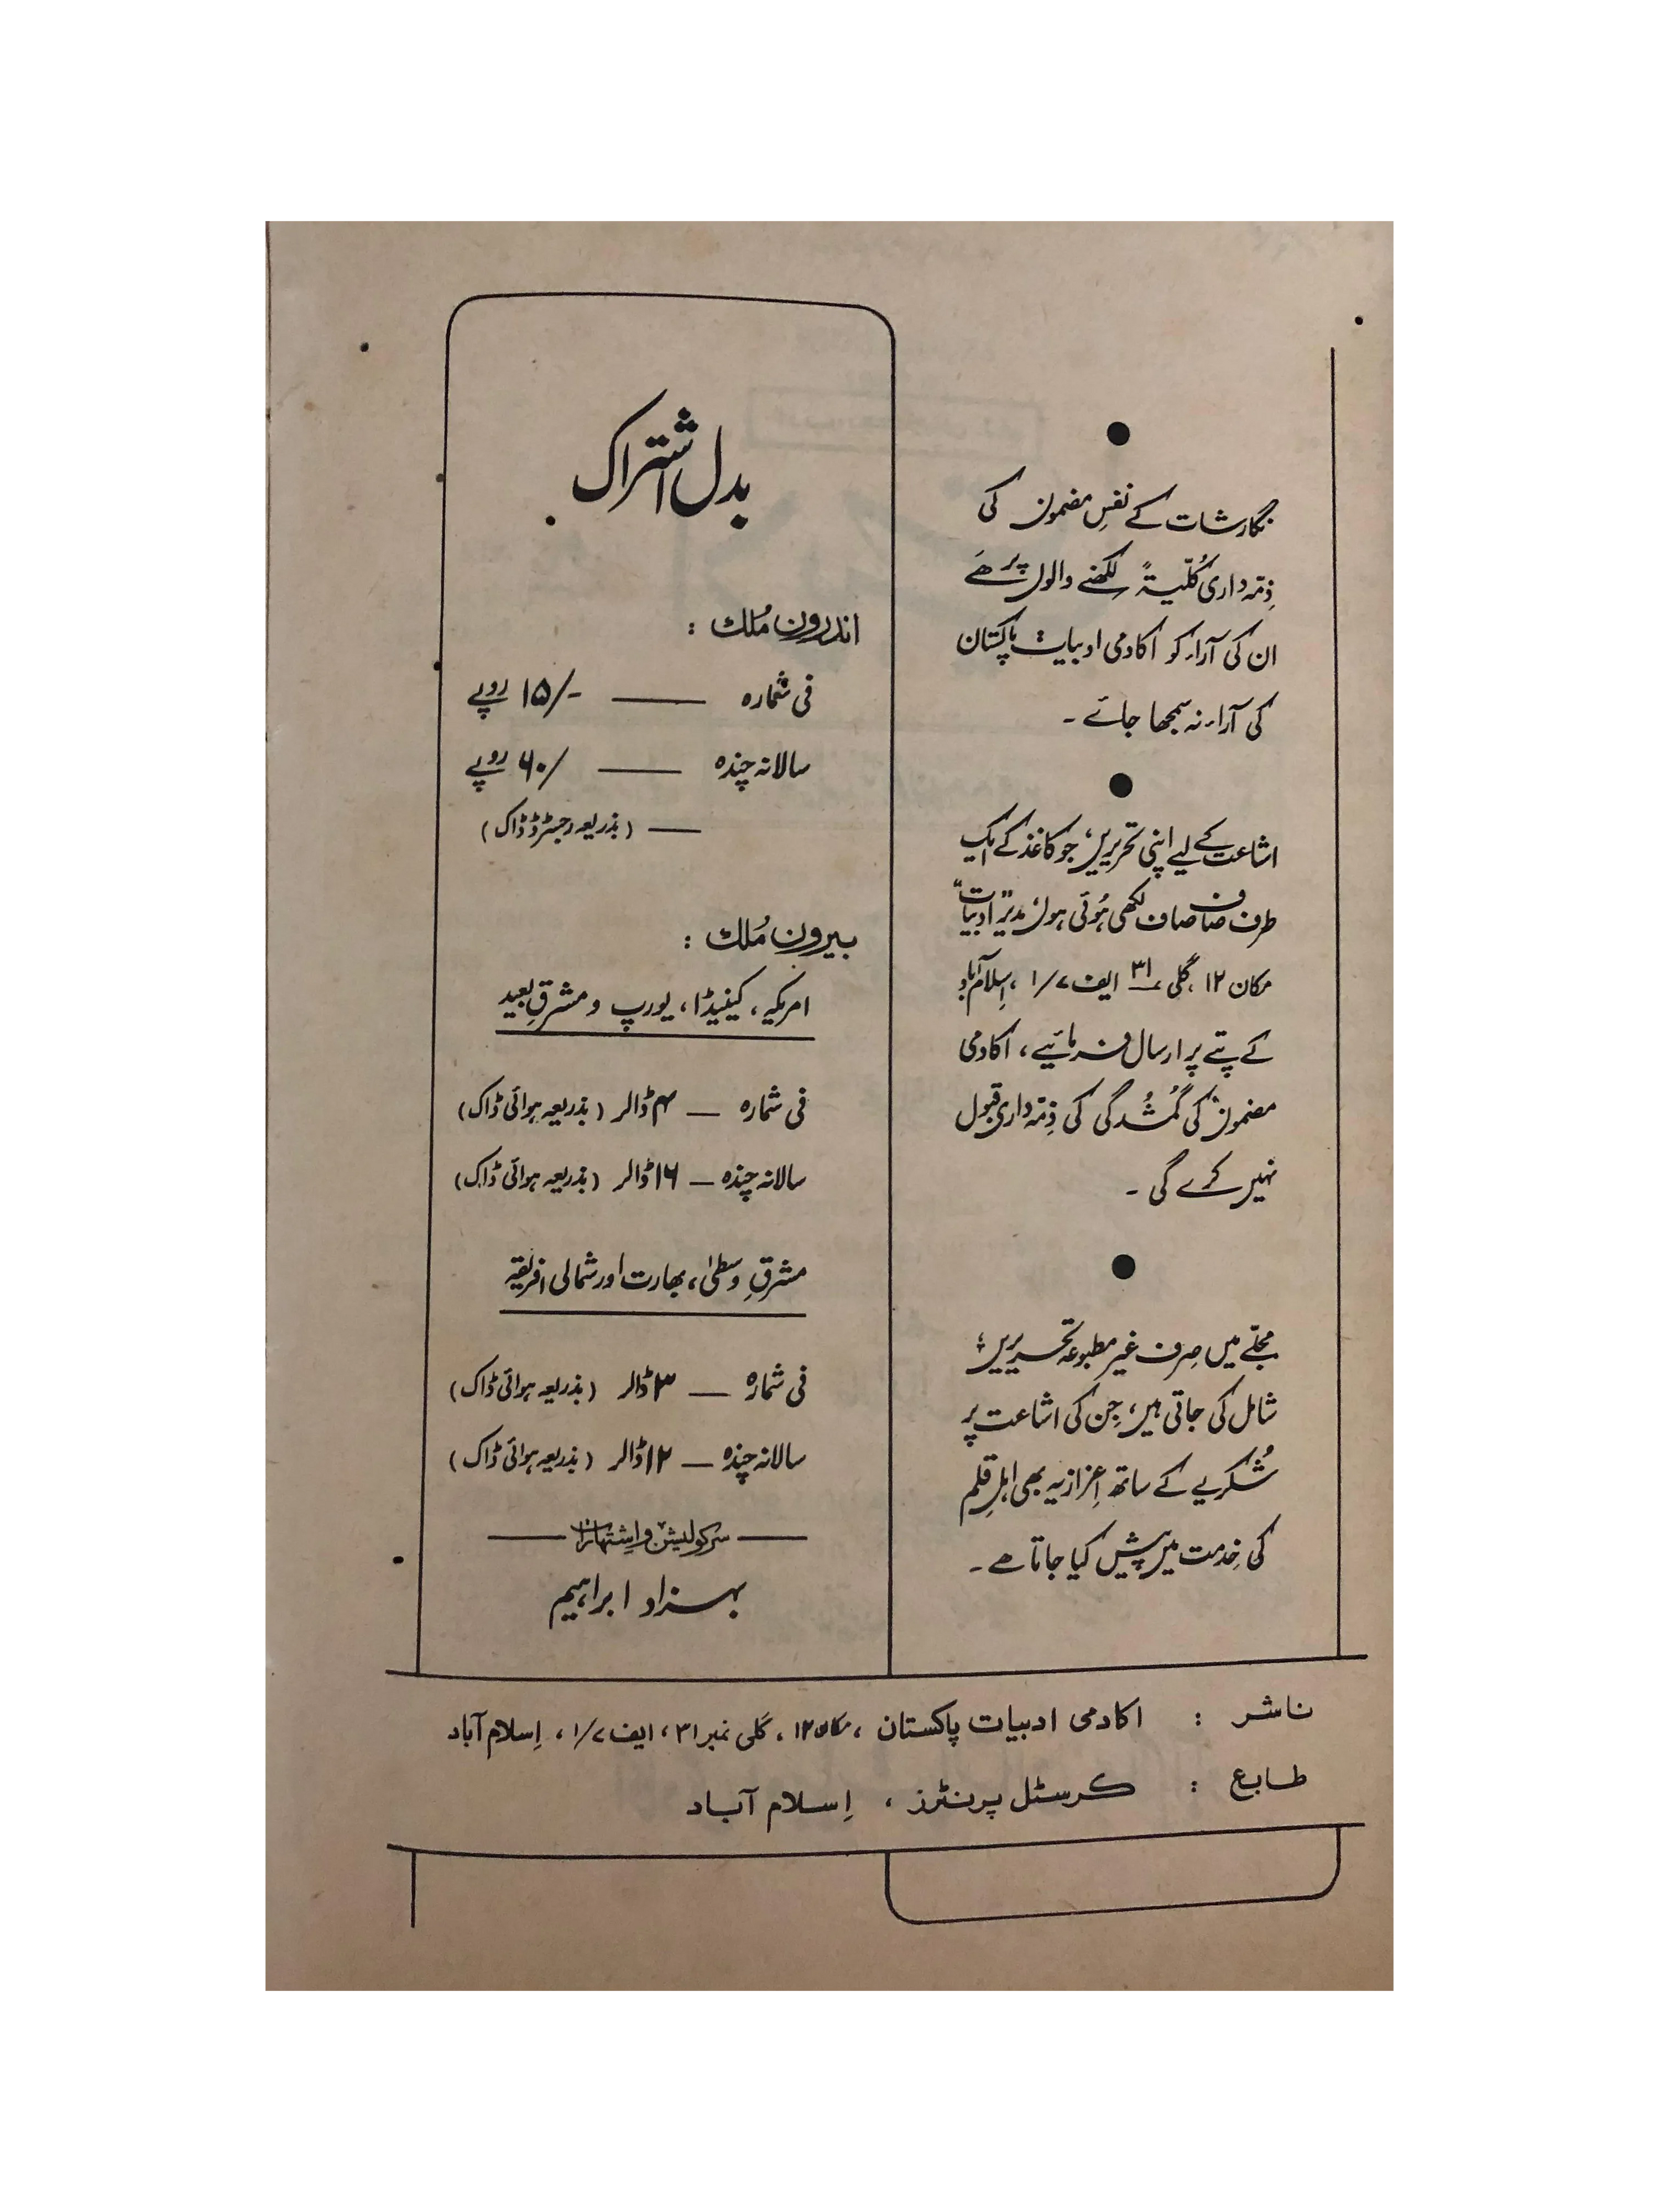 نگارشات کے نفسِ مضمون کی
ذِمّہ داری کُلّیۃً لکھنے والوں پر ھَے
ان کی آراء کو اکادمی ادبیات پاکستان
کی آراء نہ سمجھا جائے ۔
اشاعت کے لیے اپنی تحریریں، جو کاغذ کے ایک
طرف صاف صاف لکھی ہُوئی ہوں، مدیر "ادبیات"
مکان ۱۲، گلی ۳۱ ایف ۷/۱، اِسلام آباد
کے پتے پر ارسال فرمائیے، اکادمی
مضمون کی گُمشُدگی کی ذِمّہ داری قبول
نہیں کرے گی ۔
مجلّے میں صِرف غیر مطبوعہ تحریریں،
شامل کی جاتی ہیں، جِن کی اشاعت پر
شُکریے کے ساتھ اِعزازیہ بھی اہلِ قلم
کی خِدمت میں پیش کیا جاتا ھے ۔
بدل اشتراک
اندرون مُلک :
فی شمارہ —— ۱۵/- روپے
سالانہ چندہ —— ۶۰/ روپے
—— (بذریعہ رجسٹرڈ ڈاک)
بیرون مُلک :
امریکہ، کینیڈا، یورپ و مشرقِ بعید
فی شمارہ — ۴ ڈالر (بذریعہ ہوائی ڈاک)
سالانہ چندہ — ۱۶ ڈالر (بذریعہ ہوائی ڈاک)
مشرقِ وسطیٰ، بھارت اور شمالی افریقہ
فی شمارہ — ۳ ڈالر (بذریعہ ہوائی ڈاک)
سالانہ چندہ — ۱۲ ڈالر (بذریعہ ہوائی ڈاک)
—— سرکولیشن و اِشتہارات ——
بہزاد ابراہیم
ناشر : اکادمی ادبیات پاکستان، مکان ۱۲، گلی نمبر ۳۱، ایف ۷/۱، اِسلام آباد
طابع : کرسٹل پرنٹرز، اِسلام آباد